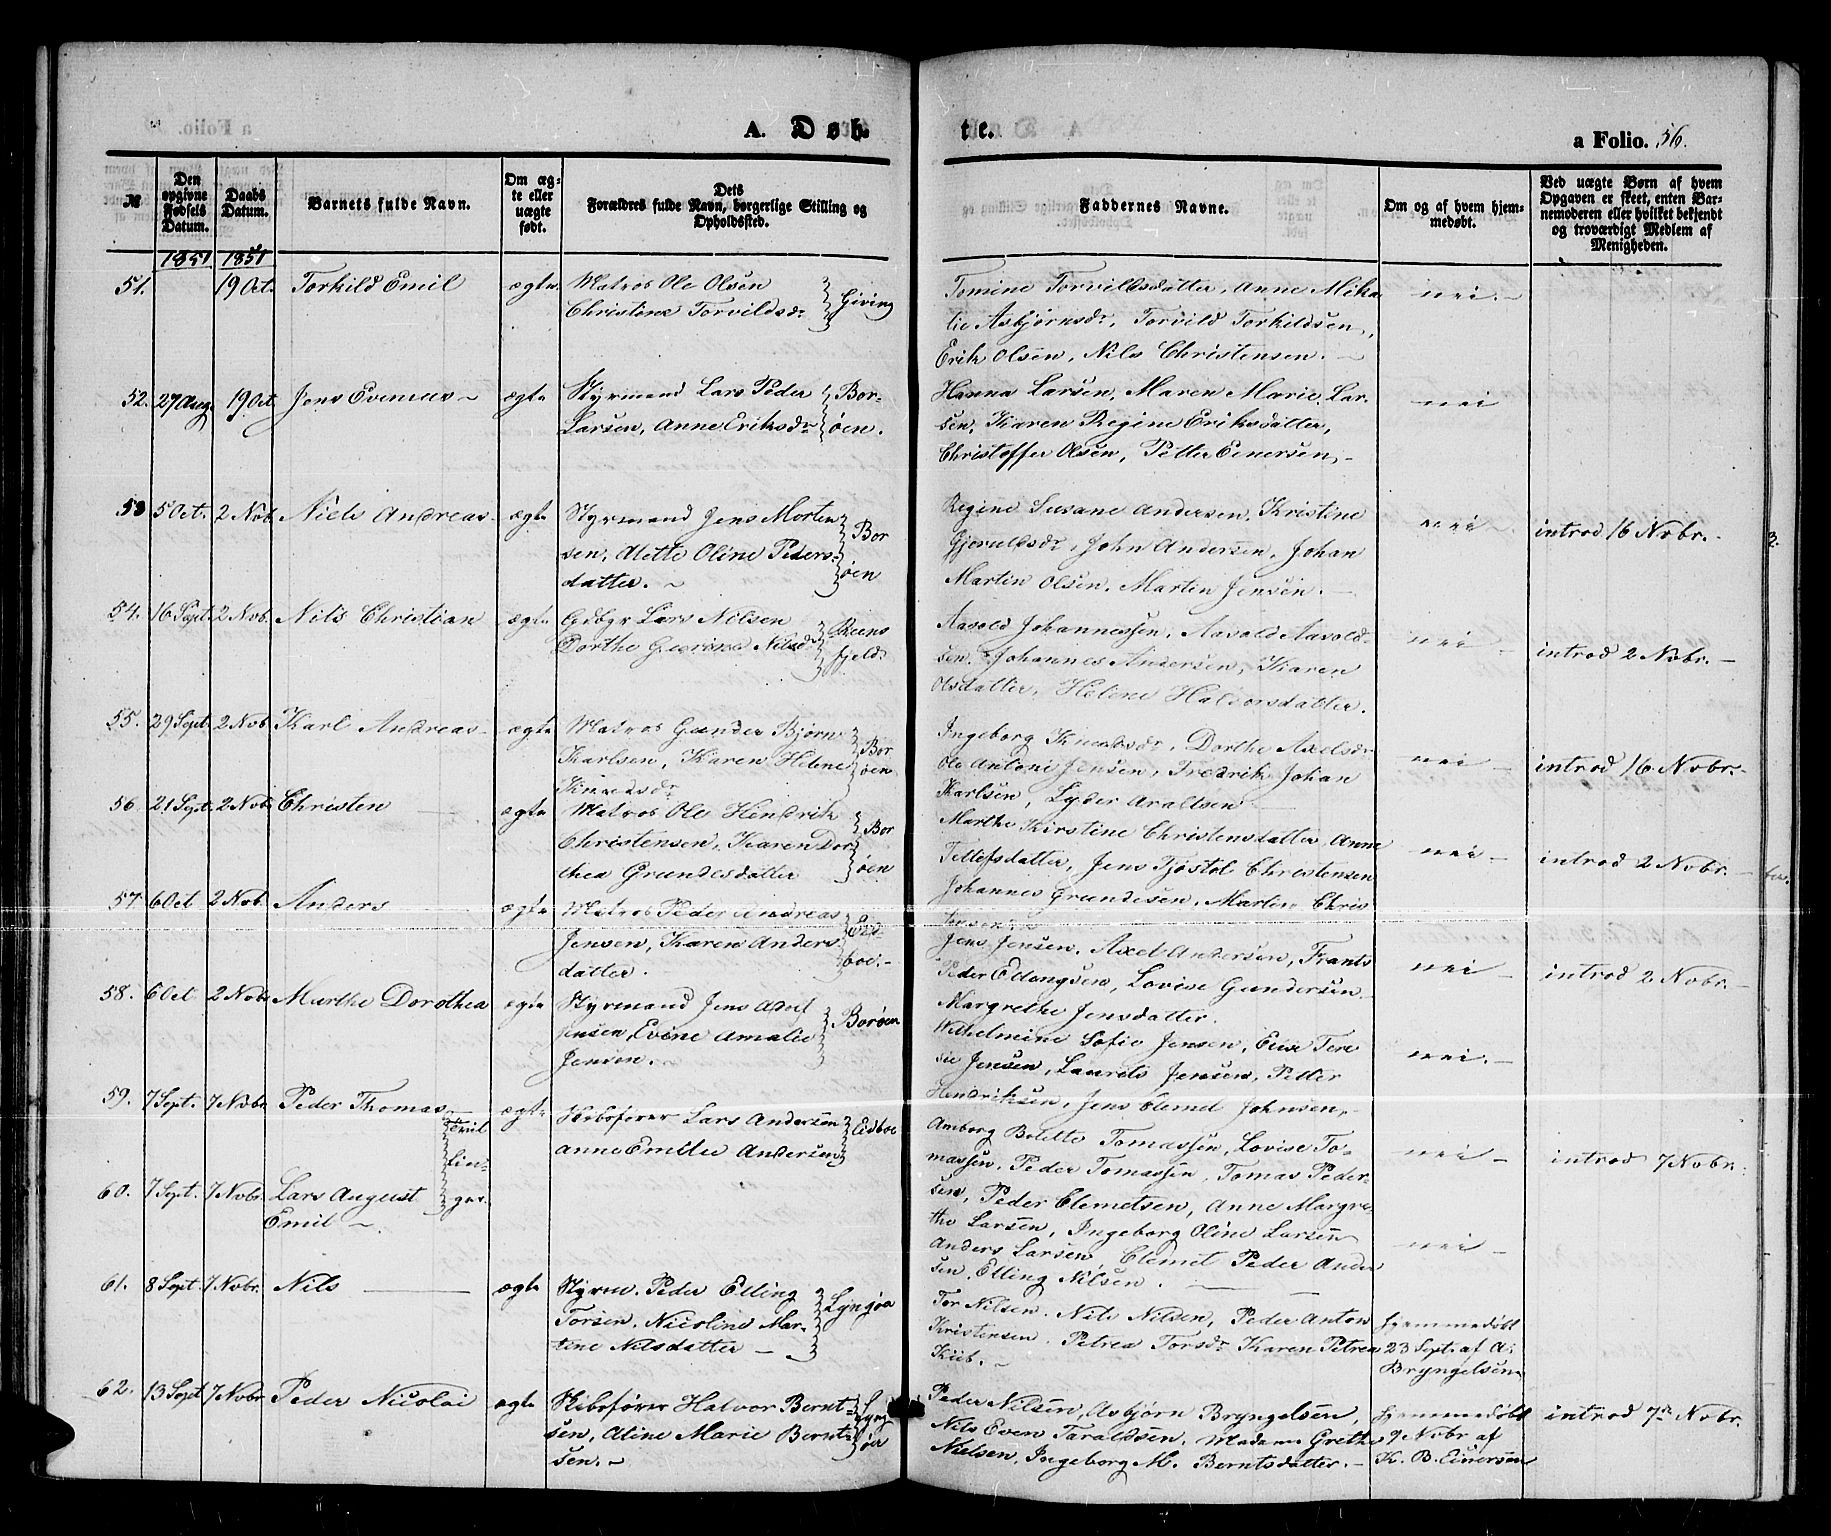 A. Døb- te.
a Folio. 56.
№
Den opgivne Fødsels Datum.
Daabs Datum.
Barnets fulde Navn.
Om ægte eller uægte født.
Dets Forældres fulde Navn, borgerlige Stilling og Opholdssted.
Faddernes Navne.
Om og af hvem hjemmedøbt.
Ved uægte Børn af hvem Opgaven er skeet, enten Barnemoderen eller hvilket bekjendt og troværdigt Medlem af Menigheden.
1851 1851
51. 19 Oct. Torkild Emil ægte. Matros Ole Olsen
Christine Torvildsdr Giving
Tomine Torvildsdatter, Anne Mika-
lie Asbjørnsdr, Torvild Torkildsen,
Erik Olsen, Nils Christensen. —
nei. —
52. 27 Aug. 19 Oct. Jens Evenius — ægte Styrmand Lars Peder
Larsen, Anne Eriksdr Bor-
øen.
Hanna Larsen, Maren Marie Lar-
sen, Karen Regine Eriksdatter,
Christoffer Olsen, Petter Einersen, —
nei
53 5 Oct. 2 Nob. Niels Andreas ægte Styrmand Jens Morten
sen, Alette Oline Peders-
datter. ~ Bor
øen
Regine Susane Andersen, Kristine
Gjeruldsdr, John Andersen, Johan
Martin Olsen, Martin Jensen. —
nei — introd 16 Nobr. —
54. 16 Sept. 2 Nob. Nils Christian ægte Gdbgr Lars Nilsen
Dorthe Gurine Nilsdr Reens
fjeld.
Aavold Johannessen, Aavold Aavold-
sen, Johannes Andersen, Karen
Olsdatter, Helene Halvorsdatter.
nei — introd 2 Nobr. —
55. 29 Sept. 2 Nob. Karl Andreas — ægte Matros Gunder Bjørn
Karlsen, Karen Helene
Knudsdr Bor
øen
Ingeborg Knudsdr, Dorthe Axelsdr
Ole Antoni Jensen, Fredrik Johan
Karlsen, Lyder Araltsen —
nei — introd 16 Nobr. —
56. 21 Sept. 2 Nob. Christen — ægte Matros Ole Hendrik
Christensen, Karen Dor
thea Gundesdatter Bor
øen
Marthe Kirstine Christensdatter, Anne
Tellefsdatter, Jens Tjøstol Christensen
Johannes Gundesen, Martin Chris
tensen
nei — introd 2 Nobr. —
57 6 Oct 2 Nob. Anders ægte Matros Peder Andreas
Jensen, Karen Anders
datter. Eid-
boe. —
Jens Jensen, Axel Andersen, Frants
Peder Edvangsen, Lovise Gundersen
Margrethe Jensdatter.
nei — introd 2 Nobr. —
58. 6 Oct 2 Nobr Marthe Dorothea ægte Styrmand Jens Adolf
Jensen, Evene Amalie
Jensen. Borøen
Wilhelmine Sofie Jensen, Elise Tere
sie Jensen, Laurets Jensen, Petter
Hendriksen, Jens Clemet Johnsen, —
nei. —
59. 7 Sept. 7 Nobr. Peder Thomas — ægte Skibsfører Lars Andersen
Anne Emilie Andersen Eidboe
Tvil
lin-
ger.
Amborg Bolette Tomassen, Lovise To-
massen, Peder Tomassen, Tomas Peder-
sen, Peder Clemetsen, Anne Margre-
the Larsen, Ingeborg Oline Larsen
Anders Larsen, Clemet Peder Ander
sen, Elling Nilsen. —
nei — introd 7 Nobr.
60. 7 Sept. 7 Nobr. Lars August
Emil ~
nei —
61. 8 Sept. 7 Nobr. Nils — ægte Styrm. Peder Elling
Torsen, Nicoline Mar-
tine Nilsdatter — Lyngøen
Tor Nilsen, Nils Nilsen, Peder Anton
Kristensen, Petrea Torsdr Karen Petren
Kiib. ~
hjemmedøbt
23 Sept. af A.
Bryngelsen
62. 13 Sept 7 Nobr Peder Nicolai ægte Skibsfører Halvor Bernt-
sen, Aline Marie Bernt
sen. ~ Lyng
øen
Peder Nilsen, Asbjørn Bryngelsen,
Nils Even Taraldsen, Madame Grethe
Nielsen, Ingeborg M. Berntsdatter. —
hjemmedøbt
9 Nobr af
K. B. Einersen
introd 7de Nobr.